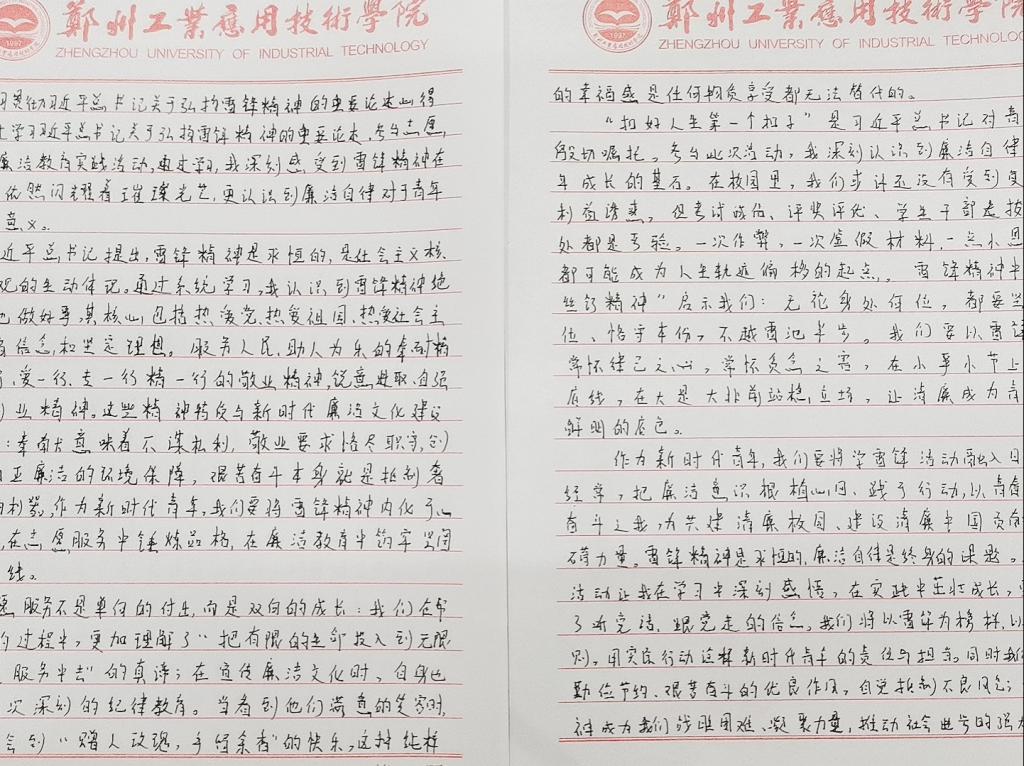 鄭州工業應用技術學院
ZHENGZHOU UNIVERSITY OF INDUSTRIAL TECHNOLOGY
1997
习贯彻习近平总书记关于弘扬雷锋精神的重要论述心得
学习习近平总书记关于弘扬雷锋精神的重要论述,参与志愿
廉洁教育实践活动,通过学习,我深刻感受到雷锋精神在
依然闪耀着璀璨光芒,更认识到廉洁自律对于青年
意义。
近平总书记提出,雷锋精神是永恒的,是社会主义核
观的生动体现。通过系统学习,我认识到雷锋精神绝
做好事,其核心包括热爱党、热爱祖国、热爱社会主
信念,和坚定理想。服务人民、助人为乐的奉献精
爱一行、专一行精一行的敬业精神,锐意进取、自强
业精神。这些精神特质与新时代廉洁文化建设
:奉献意味着不谋私利,敬业要求恪尽职守,创
正廉洁的环境保障,艰苦奋斗本身就是抵制奢
利器,作为新时代青年,我们要将雷锋精神内化于心
,在志愿服务中锤炼品格,在廉洁教育中筑牢坚固
线。
服务不是单向的付出,而是双向的成长:我们在帮
的过程中,更加理解了“把有限的生命投入到无限
服务中去”的真谛;在宣传廉洁文化时,自身也
次深刻的纪律教育。当看到他们满意的笑容时,
会到“赠人玫瑰,手留余香”的快乐,这种
鄭州工業應用技術學院
ZHENGZHOU UNIVERSITY OF INDUSTRIAL TECHNOLOGY
1997
的幸福感是任何物质享受都无法替代的。
“扣好人生第一个扣子”是习近平总书记对青
殷切嘱托。参与此次活动,我深刻认识到廉洁自律
年成长的基石。在校园里,我们或许还没有受到
利益诱惑,但考试诚信、评奖评优、学生干部选拔
处都是考验。一次作弊,一次虚假材料,一点小恩
都可能成为人生轨迹偏移的起点。雷锋精神中
丝钉精神”启示我们:无论身处何位,都要坚
位、恪守本份,不越雷池半步。我们要以雷锋
常怀律己之心,常怀贪念之害,在小事小节上
底线,在大是大非前站稳立场,让清廉成为青
鲜明的底色。
作为新时代青年,我们要将学雷锋活动融入日
经常,把廉洁意识根植心田、践于行动,以青春
奋斗之我,为共建清廉校园、建设清廉中国贡献
磅力量。雷锋精神是永恒的,廉洁自律是终身的课题。
活动让我在学习中深刻感悟,在实践中茁壮成长,
了听党话、跟党走的信念,我们将以雷锋为榜样,以
则,用实际行动诠释新时代青年的责任与担当。同时我们
勤俭节约、艰苦奋斗的优良作风,自觉抵制不良风气;
神成为我们战胜困难、凝聚力量,推动社会进步的强大